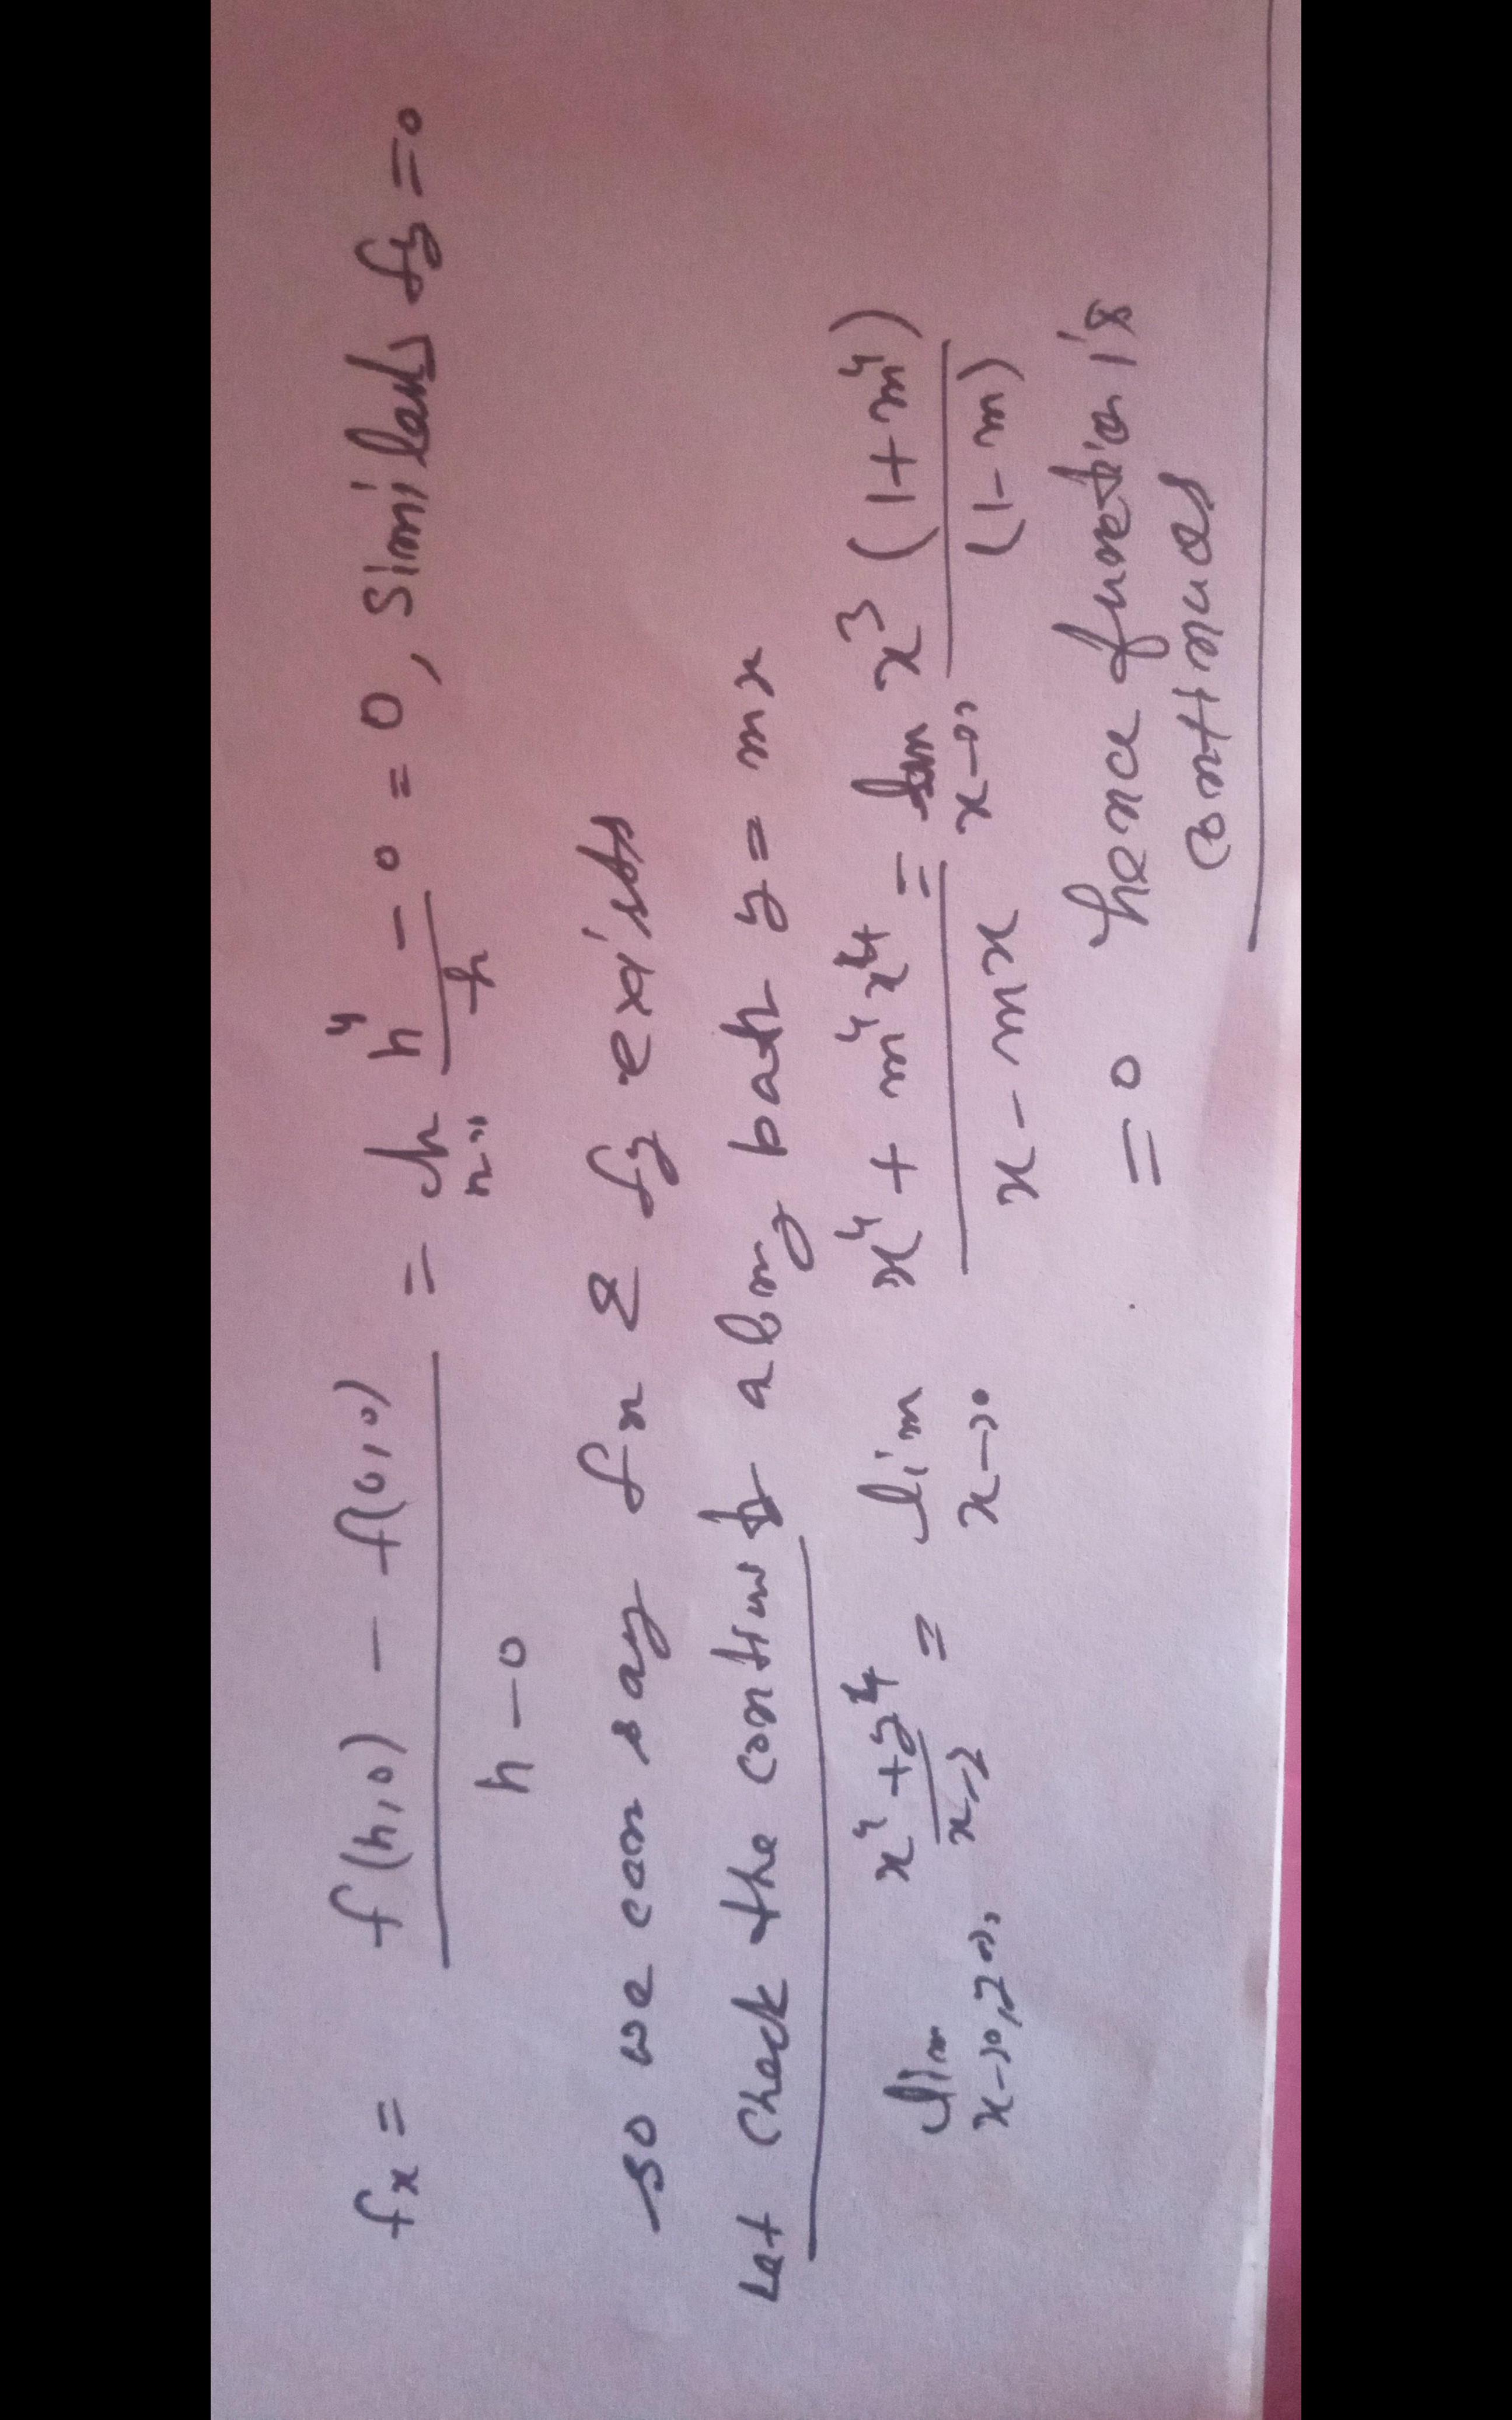 fx = f(h,0) - f(0,0) / h-0 = h→0 h⁴ - 0 / h = 0, Similarly fy = 0
so we can say fx & fy exists
Let check the continuity along path y = mx
lim x→0, y→0, x⁴+y⁴ / x-y = lim x→0 x⁴ + m⁴x⁴ / x - mx = lim x→0, x³ (1+m⁴) / (1-m)
= 0 hence function is
continuous